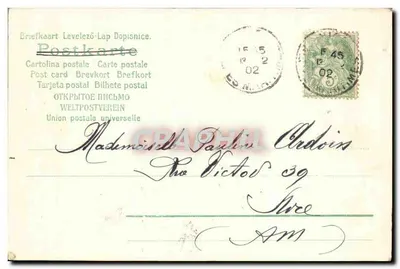 Briefkaart Levelező-Lap Dopisnice.
Postkarte
Cartolina postale Carte postale
Post card Brevkort Brefkort
Tarjeta postal Bilhete postal
ОТКРЫТОЕ ПИСЬМО
WELTPOSTVEREIN
Union postale universelle
45
2
02
45
02
5
Mademoiselle Pauline Ardoin
Rue Victor 39
Nice
(AM)